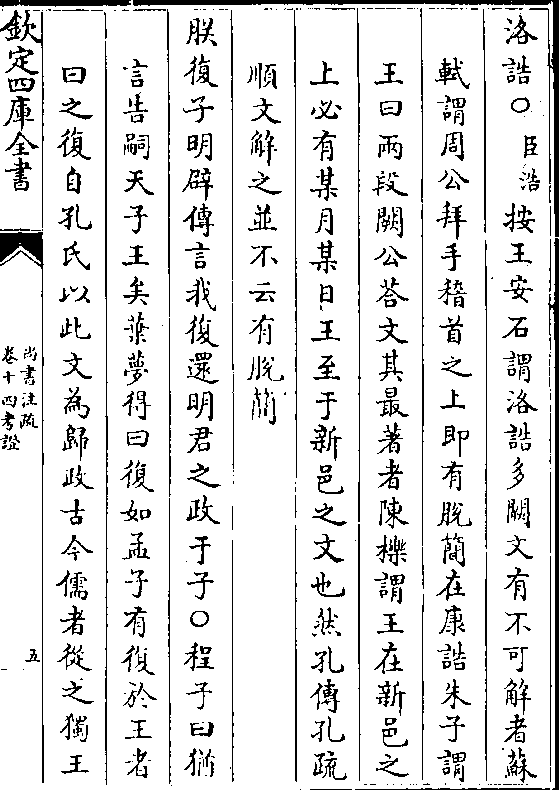 洛誥○臣浩按王安石謂洛誥多闕文有不可解者蘇
軾謂周公拜手稽首之上即有脫簡在康誥朱子謂
王曰兩段闕公荅文其最著者陳櫟謂王在新邑之
上必有某月某日王至于新邑之文也然孔傳孔疏
順文解之並不云有脫簡
朕復子明辟傳言我復還明君之政于子○程子曰猶
言告嗣天子王矣葉夢得曰復如孟子有復於王者
曰之復自孔氏以此文為歸政古今儒者從之獨王
欽定四庫全書
尚書注疏
卷十四考證
五